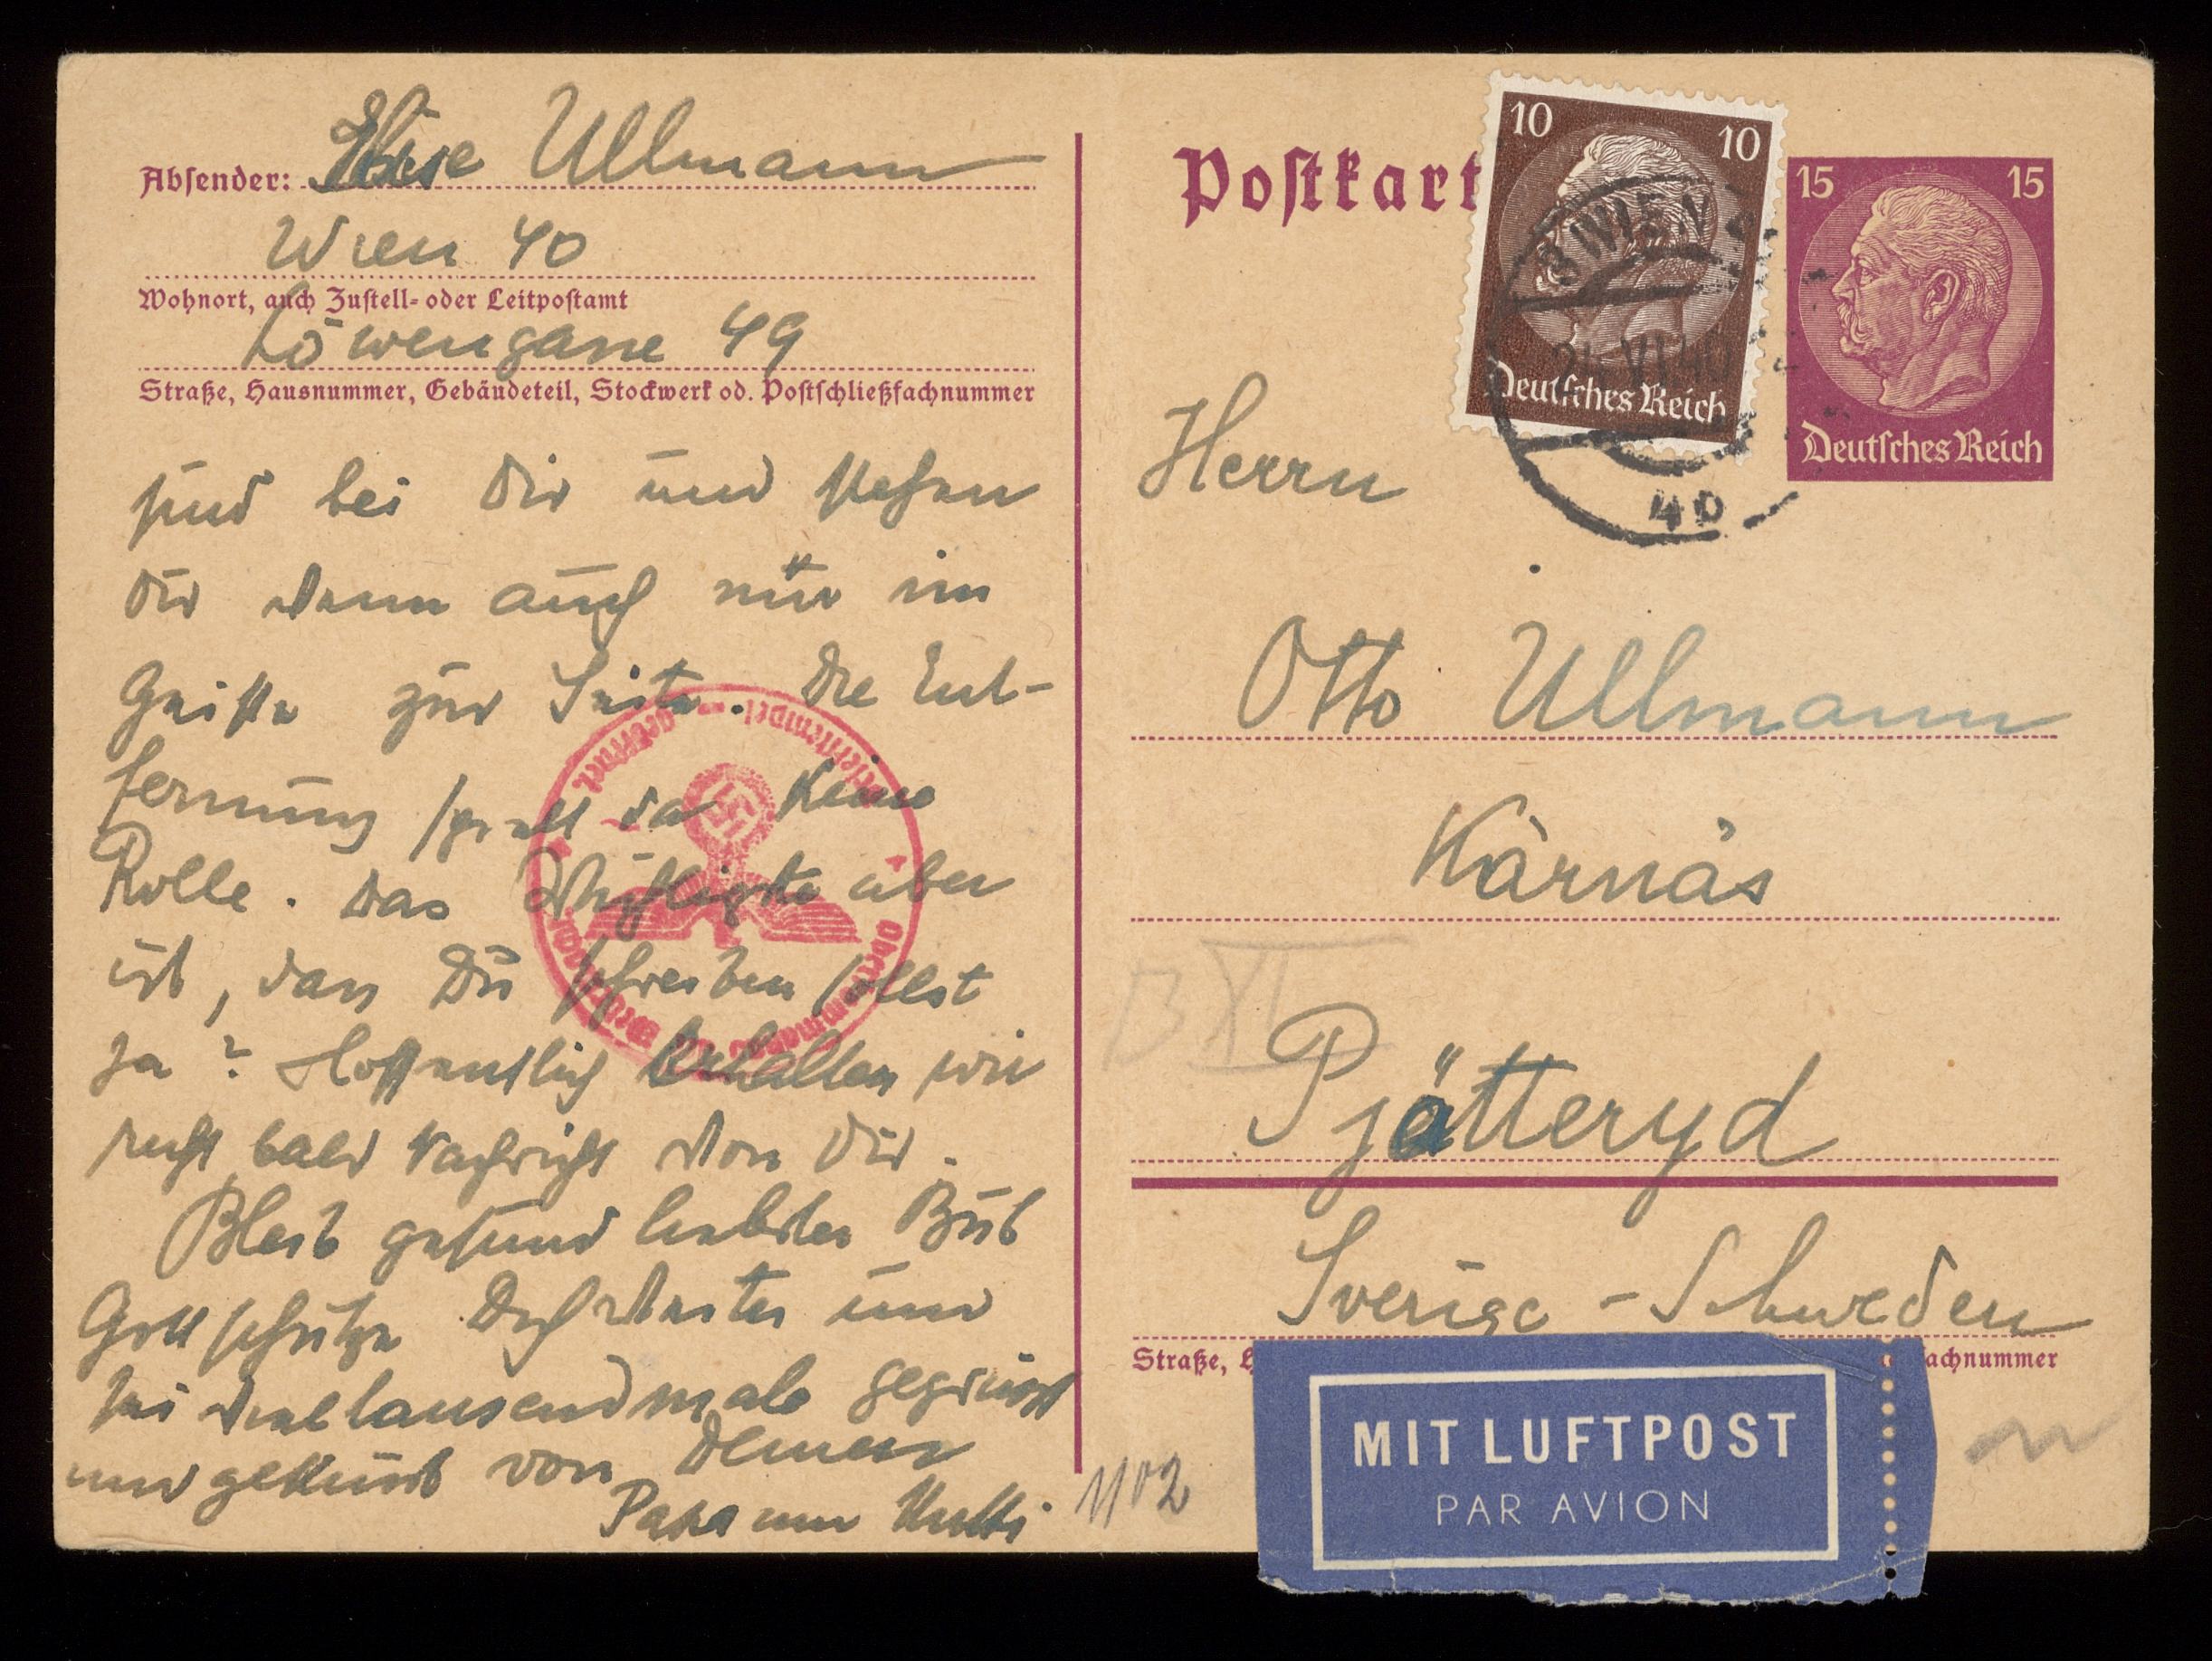 Absender: Else Ullmann
Wien 40
Wohnort, auch Zustell- oder Leitpostamt
Löwengasse 49
Straße, Hausnummer, Gebäudeteil, Stockwerk od. Postschließfachnummer
sind bei Dir und stehen
Dir wenn auch nur im
Geiste zur Seite. Die Ent-
fernung spielt da keine
Rolle. Das Wichtigste aber
ist, dass Du schreiben sollst
ja? Hoffentlich erhalten wir
recht bald Nachricht von Dir.
Bleib gesund liebster Bub
Gott schütze Dich weiter und
sei vieltausendmale gegrüsst
und geküsst von Deinen
Papa und Mutti
Postkart
10 10
Deutsches Reich
15 15
Deutsches Reich
WIEN
VI 40
40
Herrn
Otto Ullmann
Kärnäs
B XI
Pjätteryd
Sverige - Schweden
Straße, achnummer
MIT LUFTPOST
PAR AVION
1102
Oberkommando der Wehrmacht
Briefstempel geöffnet